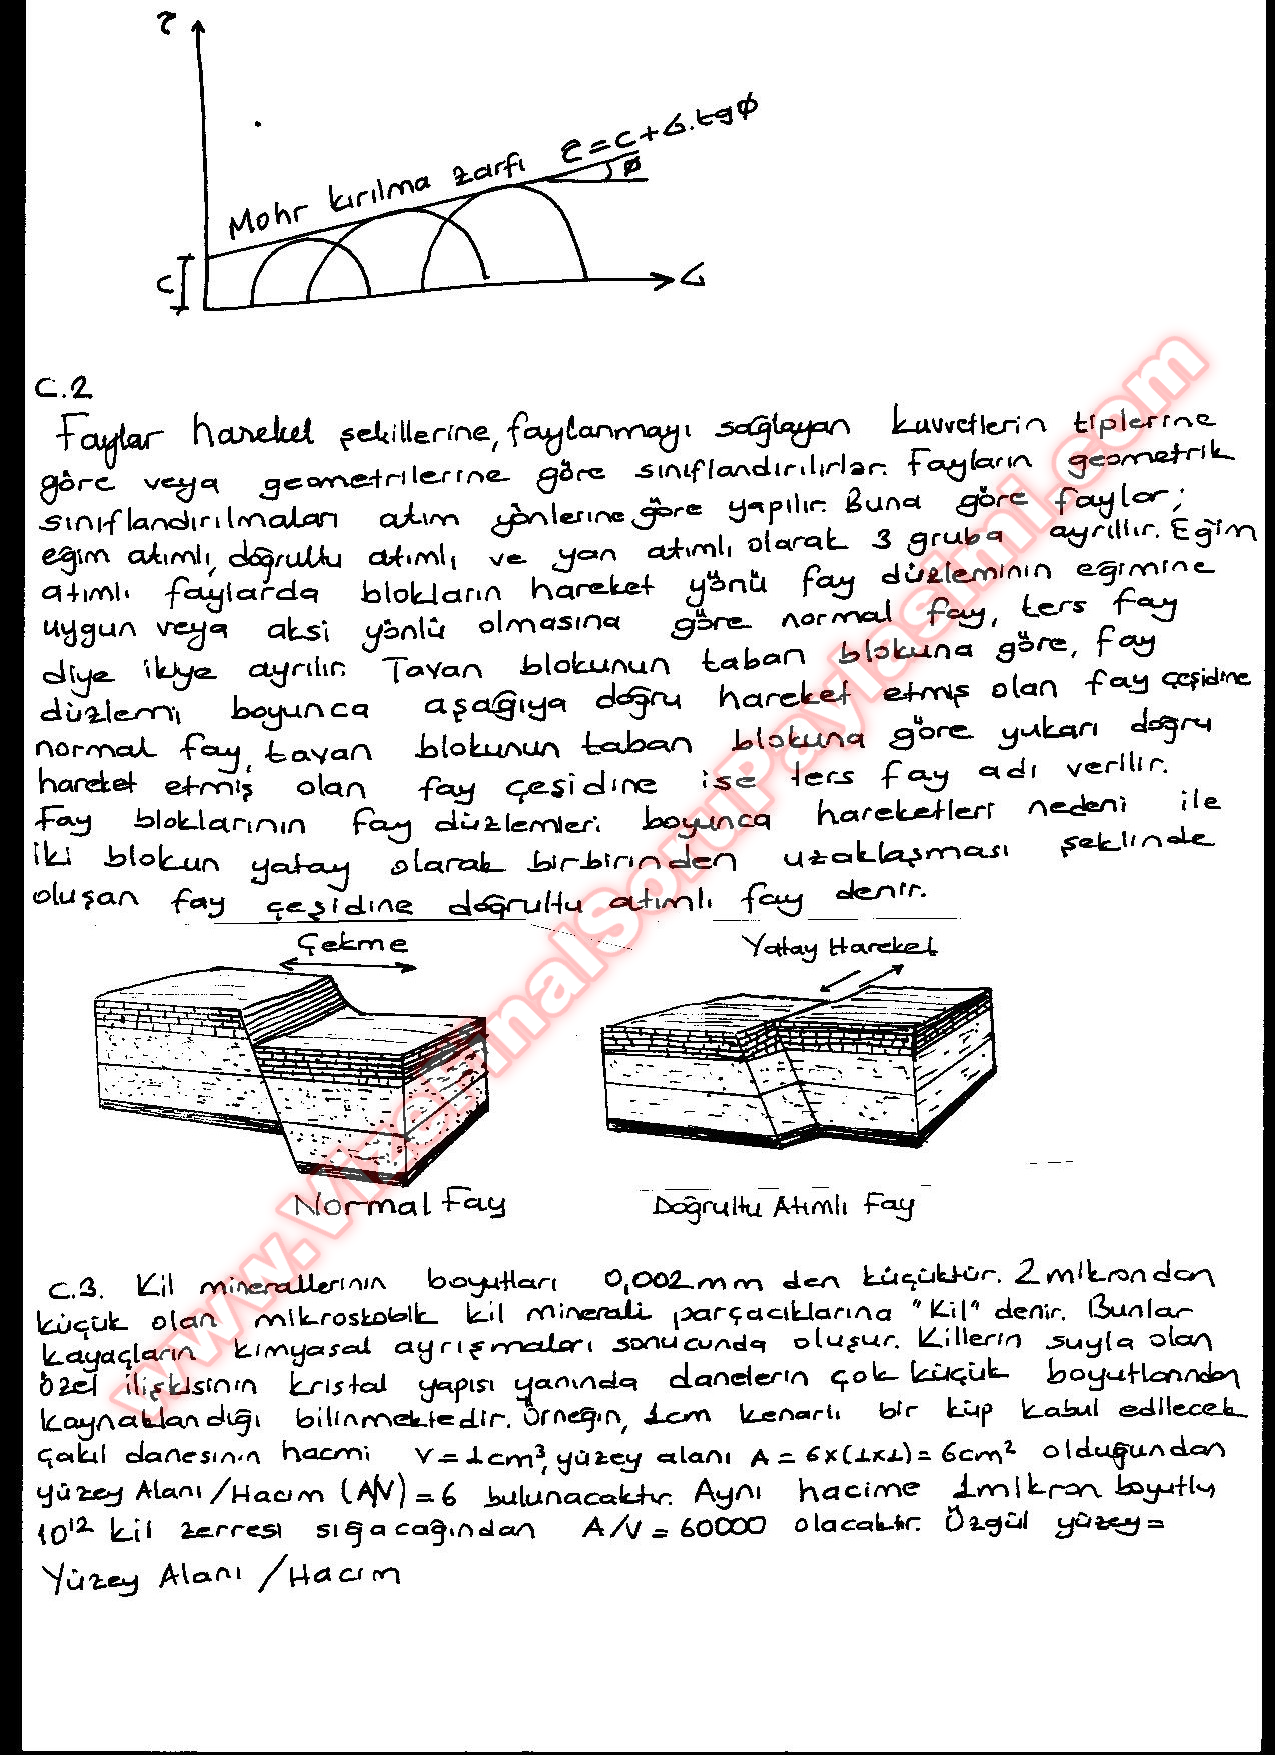 τ
Mohr kırılma zarfı τ = c + σ.tgφ
φ
c
σ
C.2
Faylar hareket şekillerine, faylanmayı sağlayan kuvvetlerin tiplerine
göre veya geometrilerine göre sınıflandırılırlar. Fayların geometrik
sınıflandırılmaları atım yönlerine göre yapılır. Buna göre faylar;
eğim atımlı, doğrultu atımlı ve yan atımlı olarak 3 gruba ayrıllır. Eğim
atımlı faylarda blokların hareket yönü fay düzleminin eğimine
uygun veya aksi yönlü olmasına göre normal fay, ters fay
diye ikiye ayrılır. Tavan blokunun taban blokuna göre, fay
düzlemi boyunca aşağıya doğru hareket etmiş olan fay çeşidine
normal fay, tavan blokunun taban blokuna göre yukarı doğru
hareket etmiş olan fay çeşidine ise ters fay adı verilir.
Fay bloklarının fay düzlemleri boyunca hareketleri nedeni ile
iki blokun yatay olarak birbirinden uzaklaşması şeklinde
oluşan fay çeşidine doğrultu atımlı fay denir.
Çekme
Yatay Hareket
Normal Fay
Doğrultu Atımlı Fay
C.3. Kil minerallerinin boyutları 0,002mm den küçüktür. 2 mikrondan
küçük olan mikroskobik kil minerali parçacıklarına "Kil" denir. Bunlar
kayaçların kimyasal ayrışmaları sonucunda oluşur. Killerin suyla olan
özel ilişkisinin kristal yapısı yanında danelerin çok küçük boyutlarından
kaynaklandığı bilinmektedir. Örneğin, 1cm kenarlı bir küp kabul edilecek
çakıl danesinin hacmi V=1cm³, yüzey alanı A = 6x(1x1)= 6cm² olduğundan
yüzey Alanı/Hacım (A/V) = 6 bulunacaktır. Aynı hacime 1mikron boyutlu
10¹² kil zerresi sığacağından A/V = 60000 olacaktır. Özgül yüzey=
Yüzey Alanı / Hacım
www.VizeFinalSoruPaylasimi.com